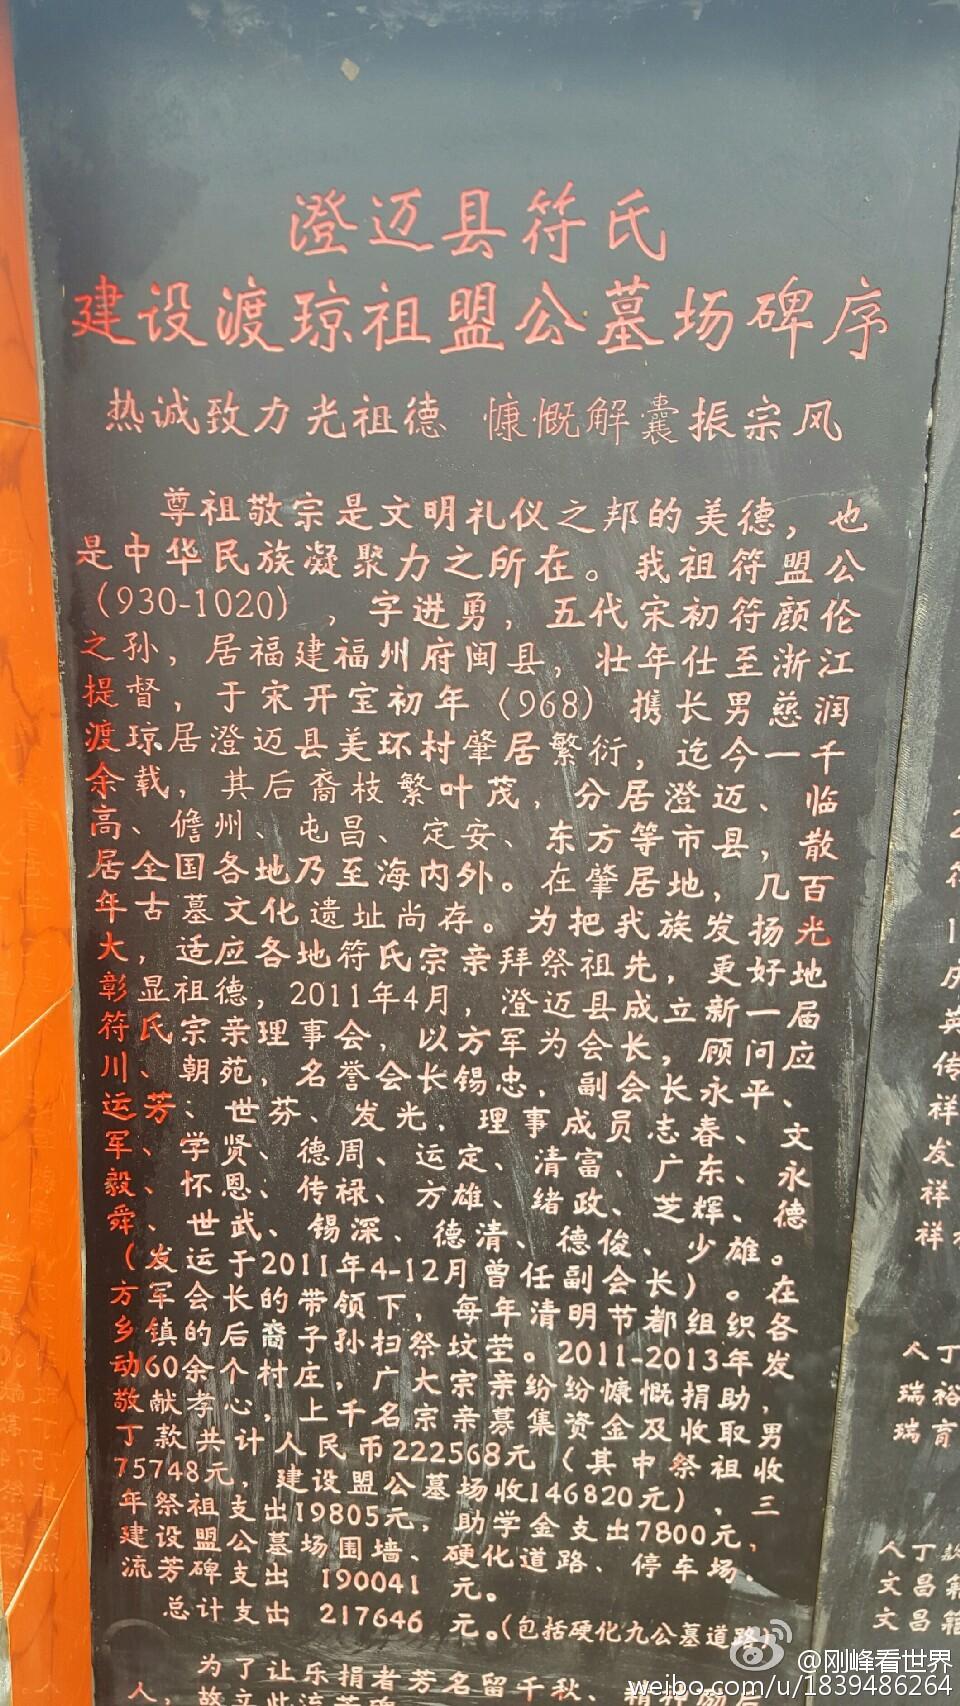 澄迈县符氏
建设渡琼祖盟公墓场碑序
热诚致力光祖德 慷慨解囊振宗风
尊祖敬宗是文明礼仪之邦的美德，也
是中华民族凝聚力之所在。我祖符盟公
（930-1020），字进勇，五代宋初符颜伦
之孙，居福建福州府闽县，壮年仕至浙江
提督，于宋开宝初年（968）携长男慈润
渡琼居澄迈县美环村肇居繁衍，迄今一千
余载，其后裔枝繁叶茂，分居澄迈、临
高、儋州、屯昌、定安、东方等市县，散
居全国各地乃至海内外。在肇居地，几百
年古墓文化遗址尚存。为把我族发扬光
大，适应各地符氏宗亲拜祭祖先，更好地
彰显祖德，2011年4月，澄迈县成立新一届
符氏宗亲理事会，以方军为会长，顾问应
川、朝苑，名誉会长锡忠，副会长永平、
运芳、世芬、发光，理事成员志春、文
军、学贤、德周、运定、清富、广东、永
毅、怀恩、传禄、方雄、绪政、芝辉、德
舜、世武、锡深、德清、德俊、少雄。
（发运于2011年4-12月曾任副会长）。在
方军会长的带领下，每年清明节都组织各
乡镇的后裔子孙扫祭坟茔。2011-2013年发
动60余个村庄，广大宗亲纷纷慷慨捐助，
敬献孝心，上千名宗亲募集资金及收取男
丁款共计人民币222568元（其中祭祖收
75748元，建设盟公墓场收146820元），三
年祭祖支出19805元，助学金支出7800元，
建设盟公墓场围墙、硬化道路、停车场、
流芳碑支出 190041 元。
总计支出 217646 元。（包括硬化九公墓道路）
为了让乐捐者芳名留千秋，
人，
2
1
英
传
祥
发
祥
祥
人丁
瑞裕
瑞育
人丁款
文昌籍
文昌籍
@刚峰看世界
weibo.com/u/1839486264